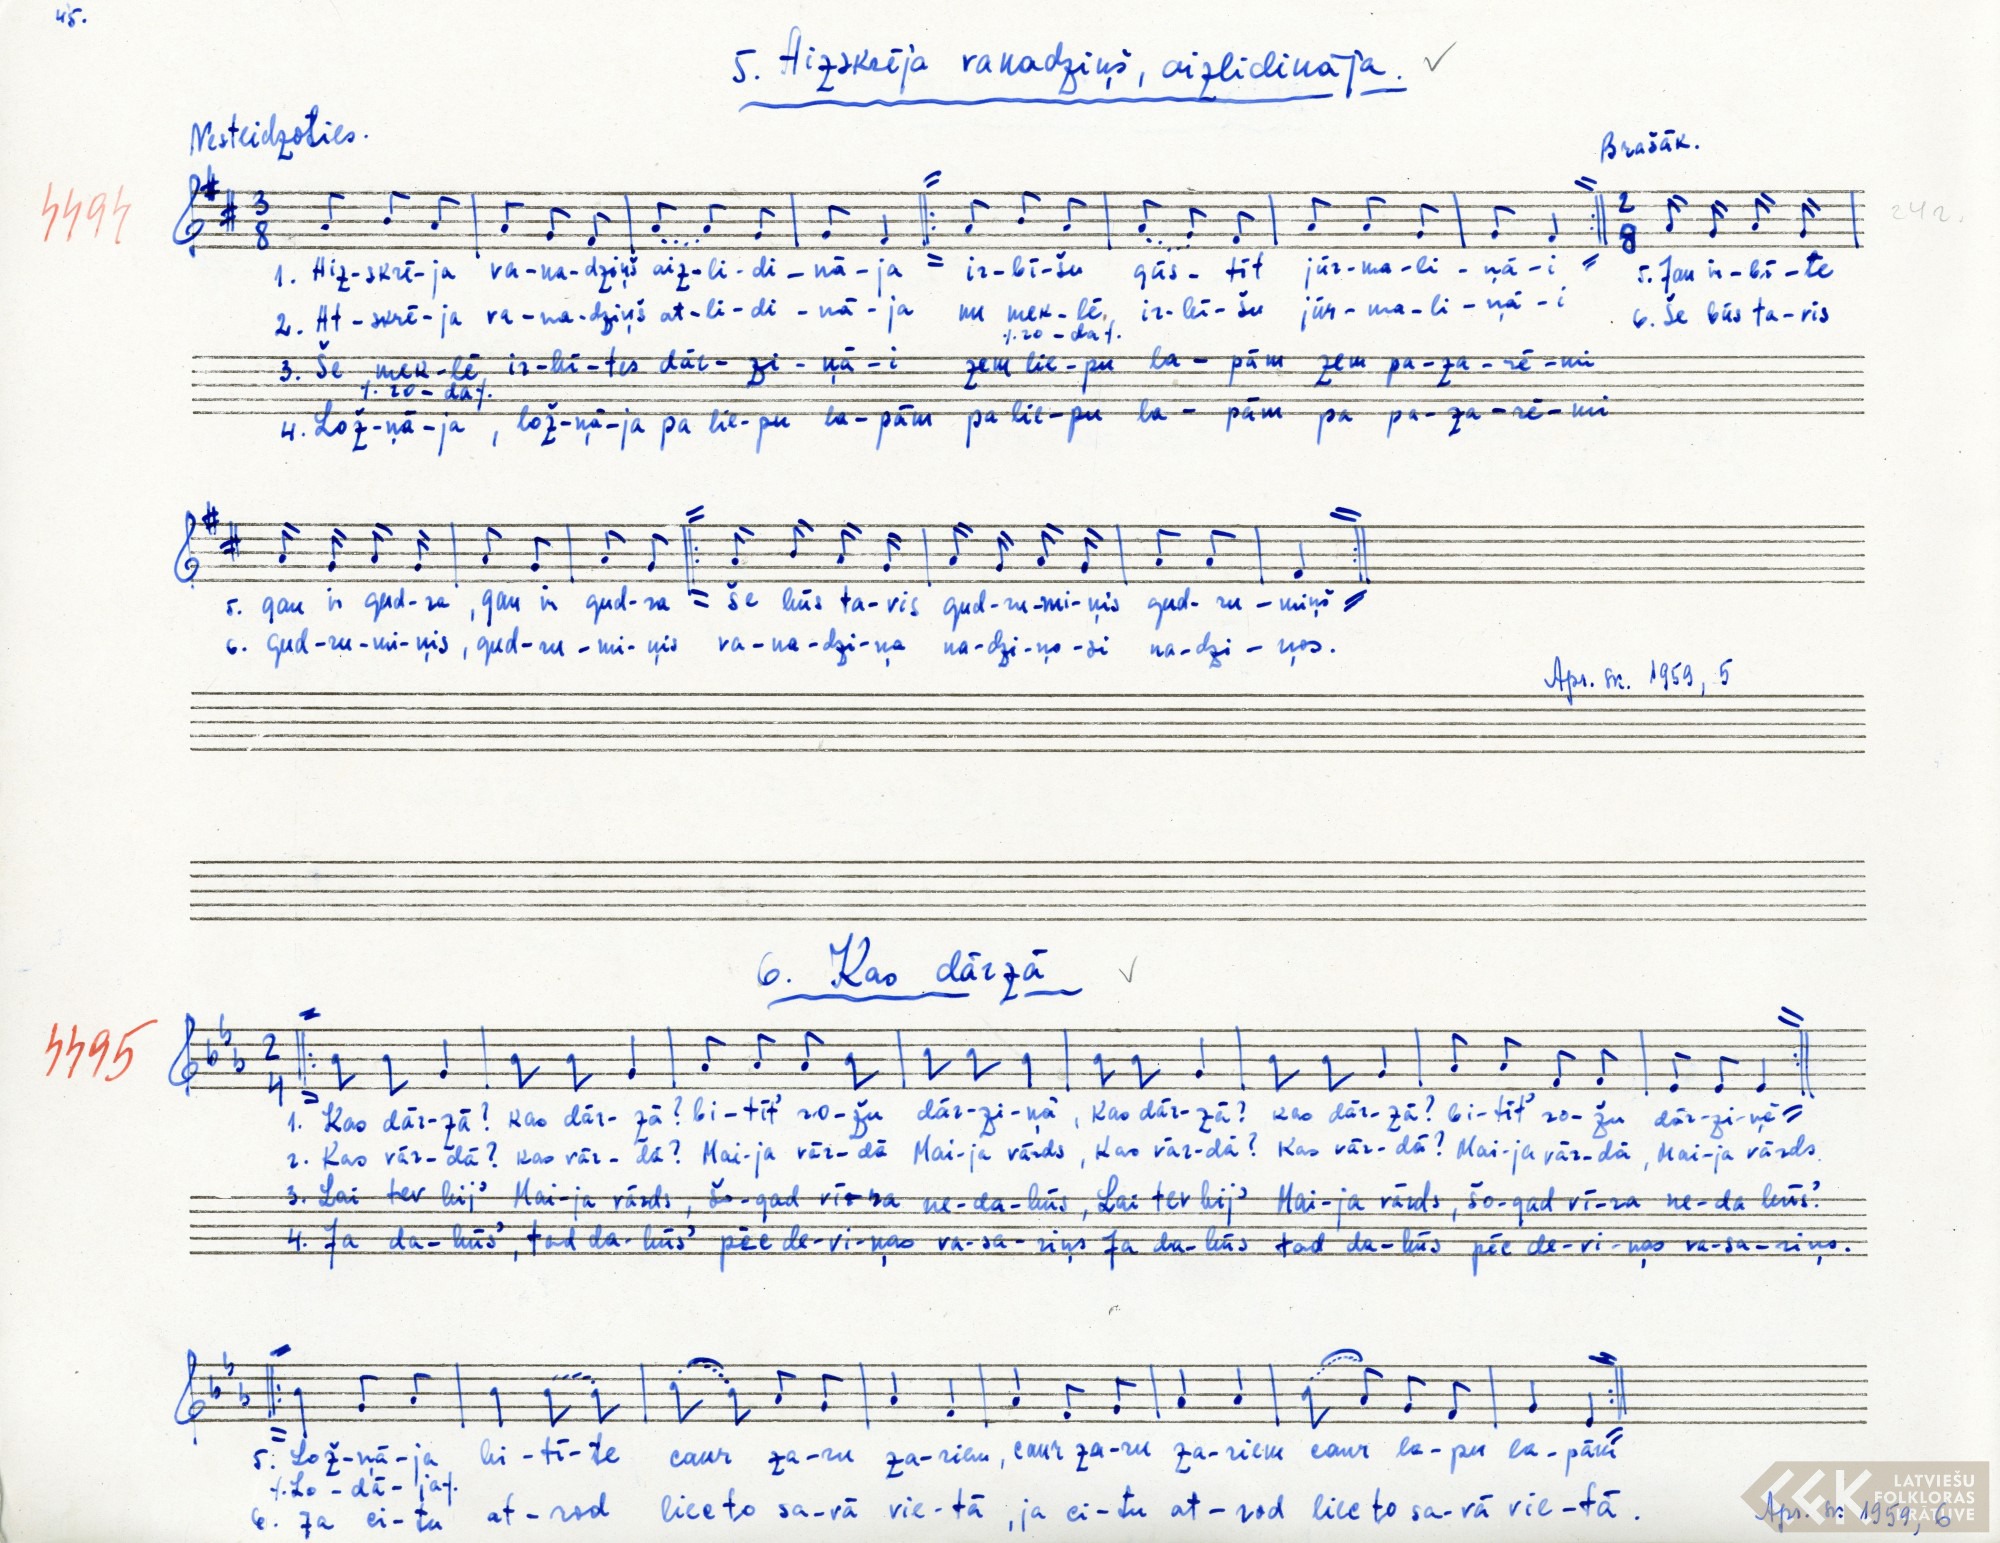 45.
5. Aizskrēja vanadziņš, aizlidināja.
Nesteidzoties.
Brašāk.
4494
3 8
2 8
24 r.
1. Aiz-skrē-ja va-na-dziņš aiz-li-di-nā-ja = ir-bī-šu gūs-tīt jūr-ma-li-ņā-i = 5. Gan ir-bī-te
2. At-skrē-ja va-na-dziņš at-li-di-nā-ja nu mek-lē, ir-bī-šu jūr-ma-li-ņā-i 6. Še būs ta-vis
/.ro-da/.
3. Še mek-lē ir-bī-tes dār-zi-ņā-i zem lie-pu la-pām zem pa-za-rē-mi
/.ro-da/.
4. Lož-ņā-ja, lož-ņā-ja pa lie-pu la-pām pa lie-pu la-pām pa pa-za-rē-mi
5. gan ir gud-ra, gan ir gud-ra = Še būs ta-vis gud-ru-mi-ņis gud-ru-miņš =
6. gud-ru-mi-ņis, gud-ru-mi-ņis va-na-dzi-ņa na-dzi-ņo-si na-dzi-ņos.
Apr. sk. 1959, 5
6. Kas dārzā
4495
2 4
1. Kas dār-zā? kas dār-zā? bi-tīt' ro-žu dār-zi-ņā, kas dār-zā? kas dār-zā? bi-tīt' ro-žu dār-zi-ņā =
2. Kas vār-dā? kas vār-dā? Mai-ja vār-dā Mai-ja vārds, kas vār-dā? Kas vār-dā? Mai-ja vār-dā, Mai-ja vārds.
3. Lai tev bij' Mai-ja vārds, šo-gad vī-ra ne-da-būs, Lai tev bij' Mai-ja vārds, šo-gad vī-ra ne-da būs'.
4. Ja da-būs', tad da-būs' pēc de-vi-ņas va-sa-riņs Ja da-būs tad da-būs pēc de-vi-ņas va-sa-riņs.
5. Lož-ņā-ja bi-tī-te caur za-ru za-riem, caur za-ru za-riem caur la-pu la-pām =
/.Lo-dā-ja/.
6. Ja ci-tu at-rod liec to sa-vā vie-tā, ja ci-tu at-rod liec to sa-vā vie-tā.
Apr. sk. 1959, 6
LATVIEŠU
FOLKLORAS
KRĀTUVE